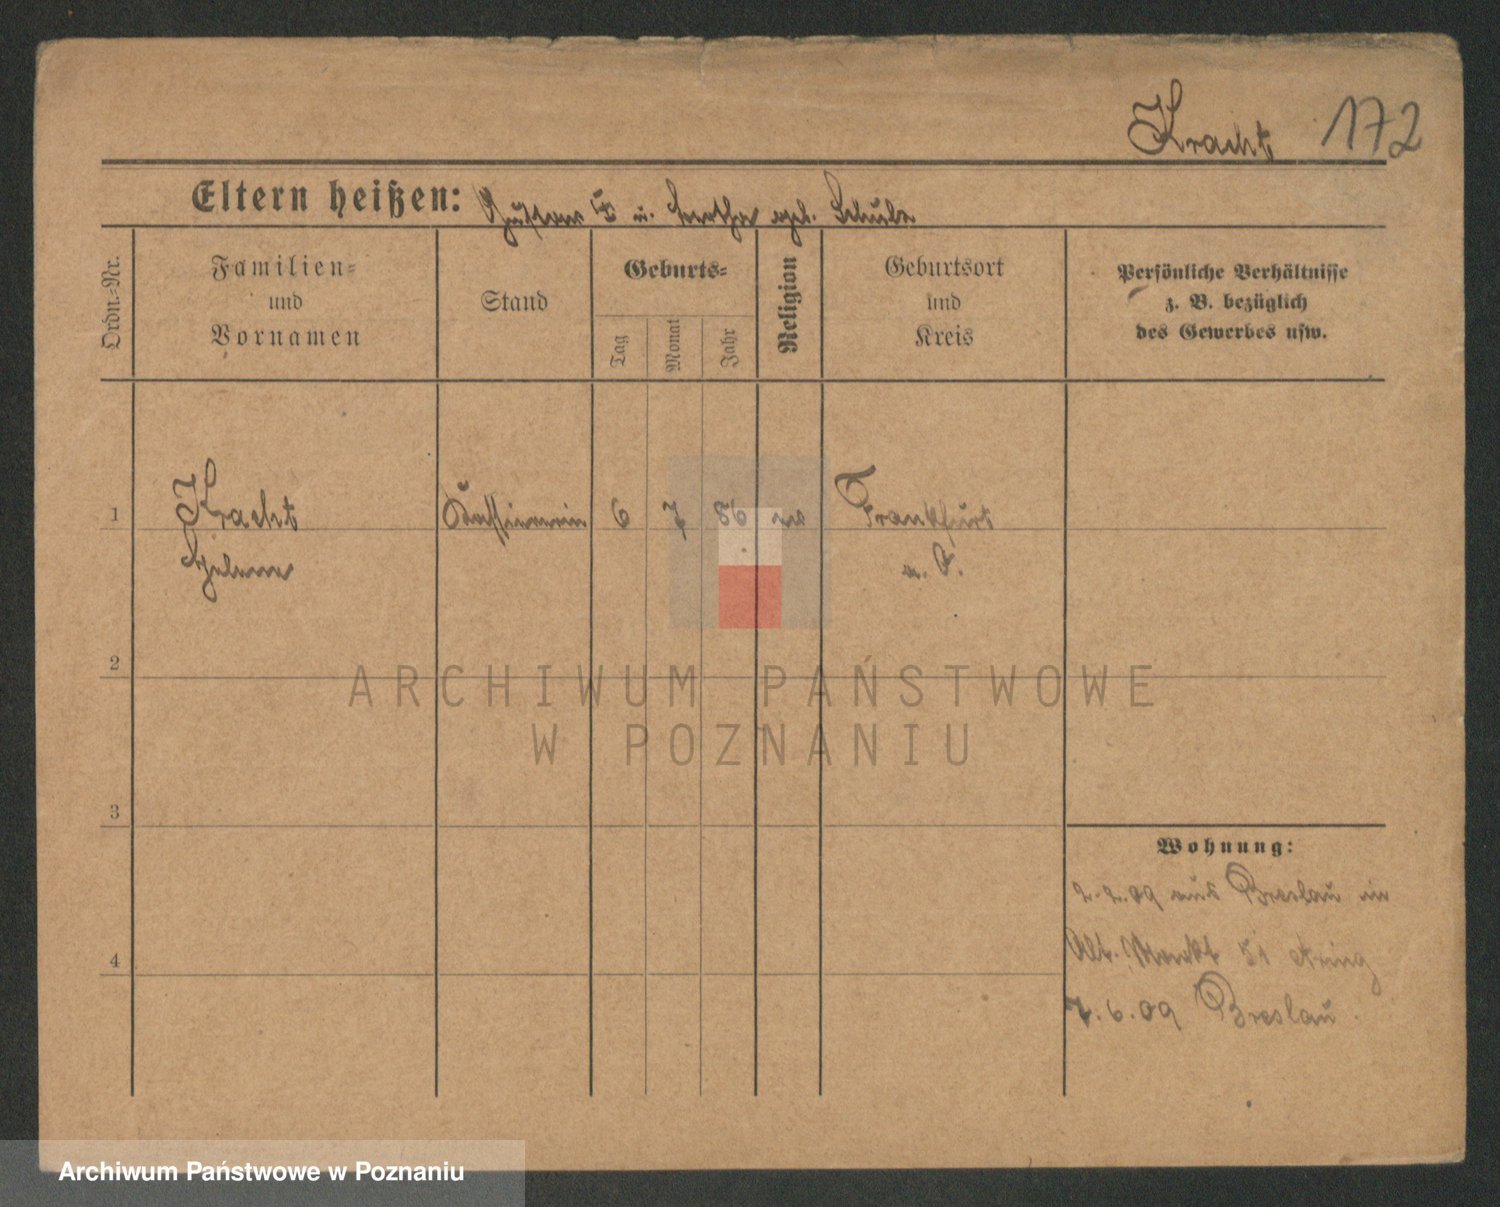 Kracht 172
Eltern heißen: Gustav u. Bertha geb. Schulz
Ordn.-Nr.
Familien-
und
Vornamen
Stand
Geburts-
Tag
Monat
Jahr
Religion
Geburtsort
und
Kreis
Persönliche Verhältnisse
z. B. bezüglich
des Gewerbes usw.
1 Kracht Kassiererin 6 7 86 ev Frankfurt
Helene a. O.
2
ARCHIWUM PAŃSTWOWE
W POZNANIU
3
Wohnung:
2.2.09 aus Breslau in
Alt. Markt 51
4
7.6.09 Breslau.
Archiwum Państwowe w Poznaniu